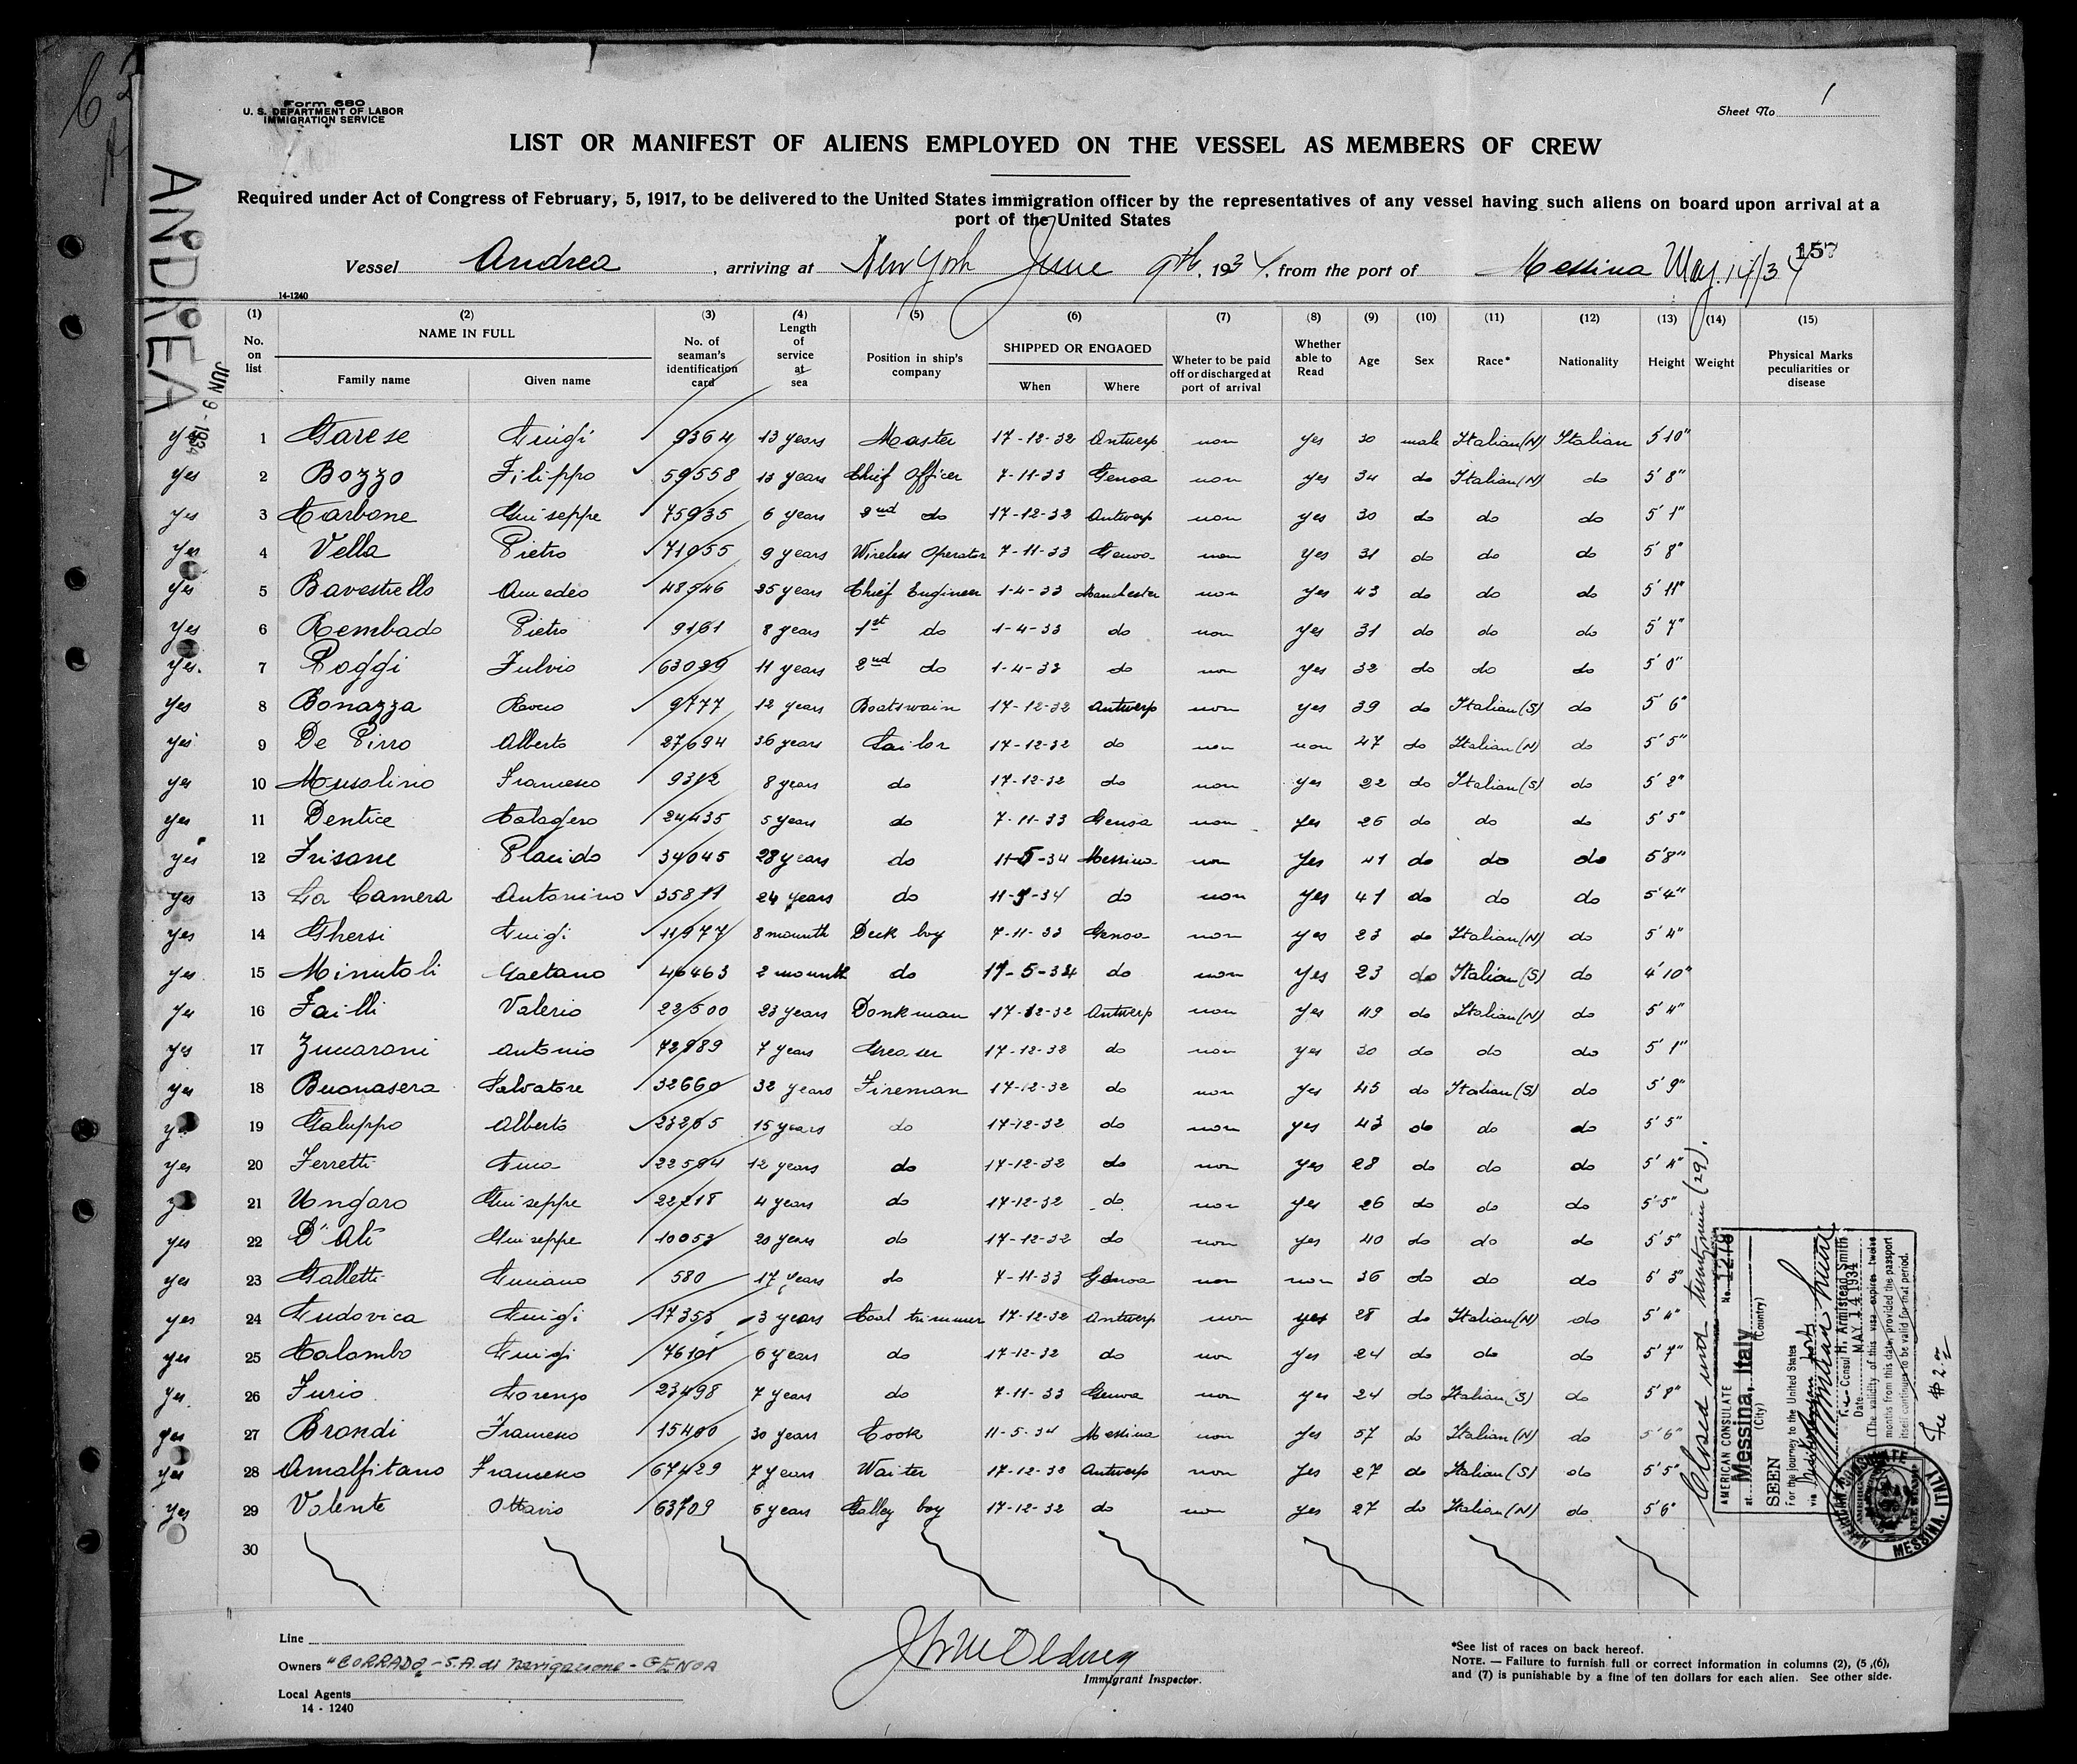 Form 680
U. S. DEPARTMENT OF LABOR
IMMIGRATION SERVICE
Sheet No 1
LIST OR MANIFEST OF ALIENS EMPLOYED ON THE VESSEL AS MEMBERS OF CREW
Required under Act of Congress of February, 5, 1917, to be delivered to the United States immigration officer by the representatives of any vessel having such aliens on board upon arrival at a
port of the United States
157
Vessel Andrea, arriving at New York June 9th, 1934, from the port of Messina May 14/34
14-1240
ANDREA
JUN 9 - 1934
(1) (2) (3) (4) (5) (6) (7) (8) (9) (10) (11) (12) (13) (14) (15)
No. on list NAME IN FULL Family name Given name No. of seaman's identification card Length of service at sea Position in ship's company SHIPPED OR ENGAGED When Where Wheter to be paid off or discharged at port of arrival Whether able to Read Age Sex Race* Nationality Height Weight Physical Marks peculiarities or disease
yes 1 Garese Luigi 9364 13 years Master 17-12-32 Antwerp non yes 30 male Italian (N) Italian 5'10"
yes 2 Bozzo Filippo 59558 13 years Chief Officer 7-11-33 Genoa non yes 34 do Italian (N) do 5'8"
yes 3 Carbone Giuseppe 75935 6 years 2nd do 17-12-32 Antwerp non yes 30 do do do 5'1"
yes 4 Vella Pietro 71955 9 years Wireless Operator 7-11-33 Genoa non yes 31 do do do 5'8"
yes 5 Bavestrello Amedeo 48546 25 years Chief Engineer 1-4-33 Manchester non yes 43 do do do 5'11"
yes 6 Rembado Pietro 9161 8 years 1st do 1-4-33 do non yes 31 do do do 5'7"
yes. 7 Poggi Fulvio 63029 11 years 2nd do 1-4-33 do non yes 32 do do do 5'0"
yes 8 Bonazza Rocco 9777 12 years Boatswain 17-12-32 Antwerp non yes 39 do Italian (S) do 5'6"
yes 9 De Pirro Alberto 27694 36 years Sailor 17-12-32 do non non 47 do Italian (N) do 5'5"
yes 10 Musolino Francesco 9312 8 years do 17-12-32 do non yes 22 do Italian (S) do 5'2"
yes 11 Dentice Calogero 24435 5 years do 7-11-33 Genoa non yes 26 do do do 5'5"
yes 12 Frisone Placido 34045 28 years do 11-5-34 Messina non yes 41 do do do 5'8"
yes 13 La Camera Antonino 35811 24 years do 11-5-34 do non yes 41 do do do 5'4"
yes 14 Ghersi Luigi 11977 8 mounth Deck boy 7-11-33 Genoa non yes 23 do Italian (N) do 5'4"
yes 15 Minutoli Gaetano 46463 2 mounth do 11-5-34 do non yes 23 do Italian (S) do 4'10"
yes 16 Failli Valerio 22500 23 years Donkman 17-12-32 Antwerp non yes 49 do Italian (N) do 5'4"
yes 17 Zuccaroni Antonio 72989 7 years Greaser 17-12-32 do non yes 30 do do do 5'1"
yes 18 Buonasera Salvatore 32660 32 years Fireman 17-12-32 do non yes 45 do Italian (S) do 5'9"
yes 19 Galuppo Alberto 23265 15 years do 17-12-32 do non yes 43 do do do 5'5"
yes 20 Ferretti Lino 22594 12 years do 17-12-32 do non yes 28 do do do 5'4"
21 Ungaro Giuseppe 22218 4 years do 17-12-32 do non yes 26 do do do 5'5"
yes 22 D'Ali Giuseppe 10053 20 years do 17-12-32 do non yes 40 do do do 5'5"
yes 23 Galletti Luciano 580 17 years do 7-11-33 Genoa non non 36 do do do 5'3"
yes 24 Ludovica Luigi 17353 3 years Coal trimmer 17-12-32 Antwerp non yes 28 do Italian (N) do 5'4"
yes 25 Colombo Luigi 76101 6 years do 17-12-32 do non yes 24 do do do 5'7"
yes. 26 Furio Lorenzo 23498 7 years do 7-11-33 Genoa non yes 24 do Italian (S) do 5'8"
yes 27 Brondi Francesco 15400 30 years Cook 11-5-34 Messina non yes 57 do Italian (N) do 5'6"
yes 28 Amalfitano Francesco 67429 7 years Waiter 17-12-32 Antwerp non yes 27 do Italian (S) do 5'5"
yes 29 Valente Ottavio 63709 6 years Galley boy 17-12-32 do non yes 27 do Italian (N) do 5'6"
30
Closed with twentynine (29).
AMERICAN CONSULATE No. 1278
at Messina, Italy
(City) (Country)
SEEN
For the journey to the United States
via
Vice Consul H. Armistead Smith
Date MAY 14 1934
(The validity of this visa expires twelve
months from this date, provided the passport
itself continues to be valid for that period.
Fee $2.
AMERICAN CONSULATE MESSINA, ITALY
Line
Owners "CORRADO" - S.A. di Navigazione - GENOA
Local Agents
14 - 1240
Immigrant Inspector.
*See list of races on back hereof.
NOTE. — Failure to furnish full or correct information in columns (2), (5,(6),
and (7) is punishable by a fine of ten dollars for each alien. See other side.